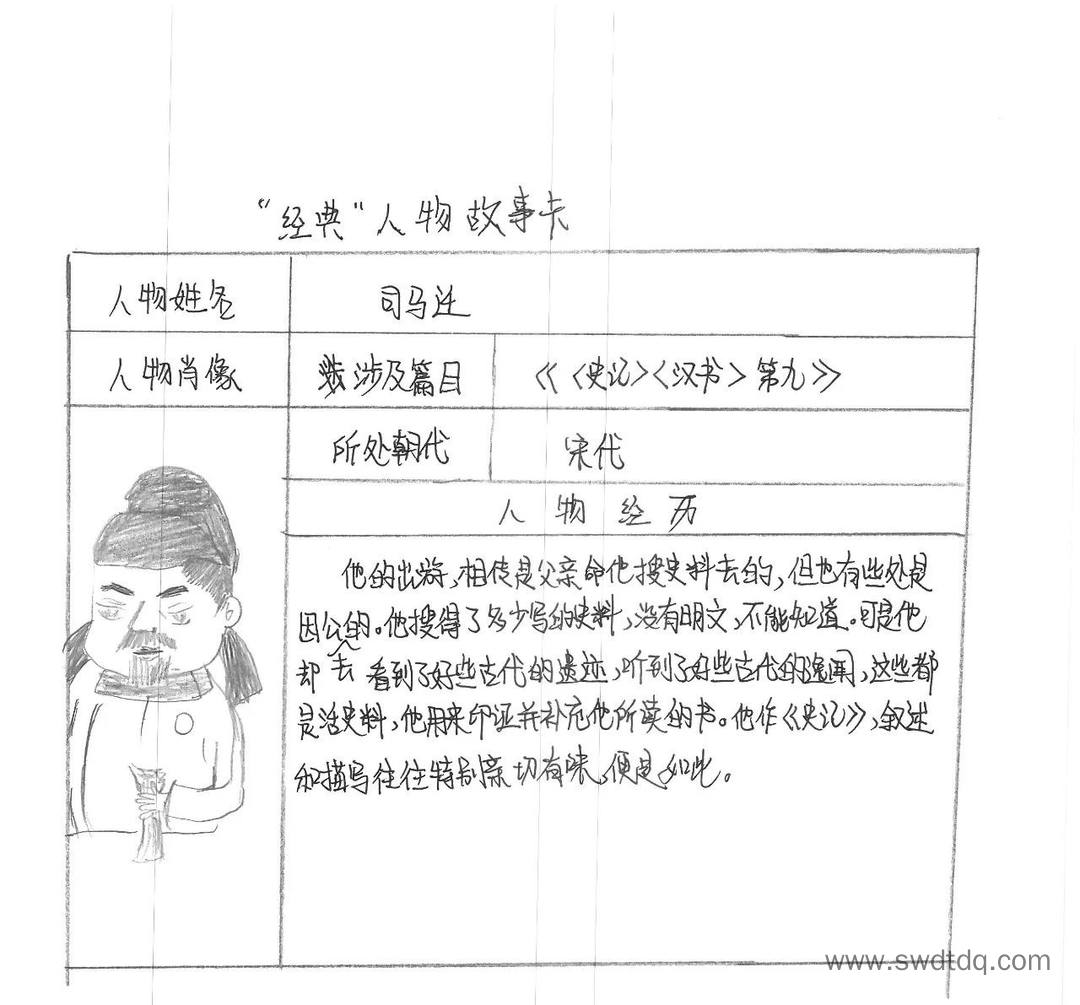 “经典”人物故事卡
人物姓名
司马迁
人物肖像
涉及篇目
《〈史记〉〈汉书〉第九》
所处朝代
宋代
人物经历
他的出游,相传是父亲命他搜史料去的,但也有些处是
因公的。他搜得了多少写的史料,没有明文,不能知道。可是他
却去看到了好些古代的遗迹,听到了好些古代的逸闻,这些都
是活史料,他用来印证并补充他所读的书。他作《史记》,叙述
和描写往往特别亲切有味,便是如此。
www.swdtdq.com